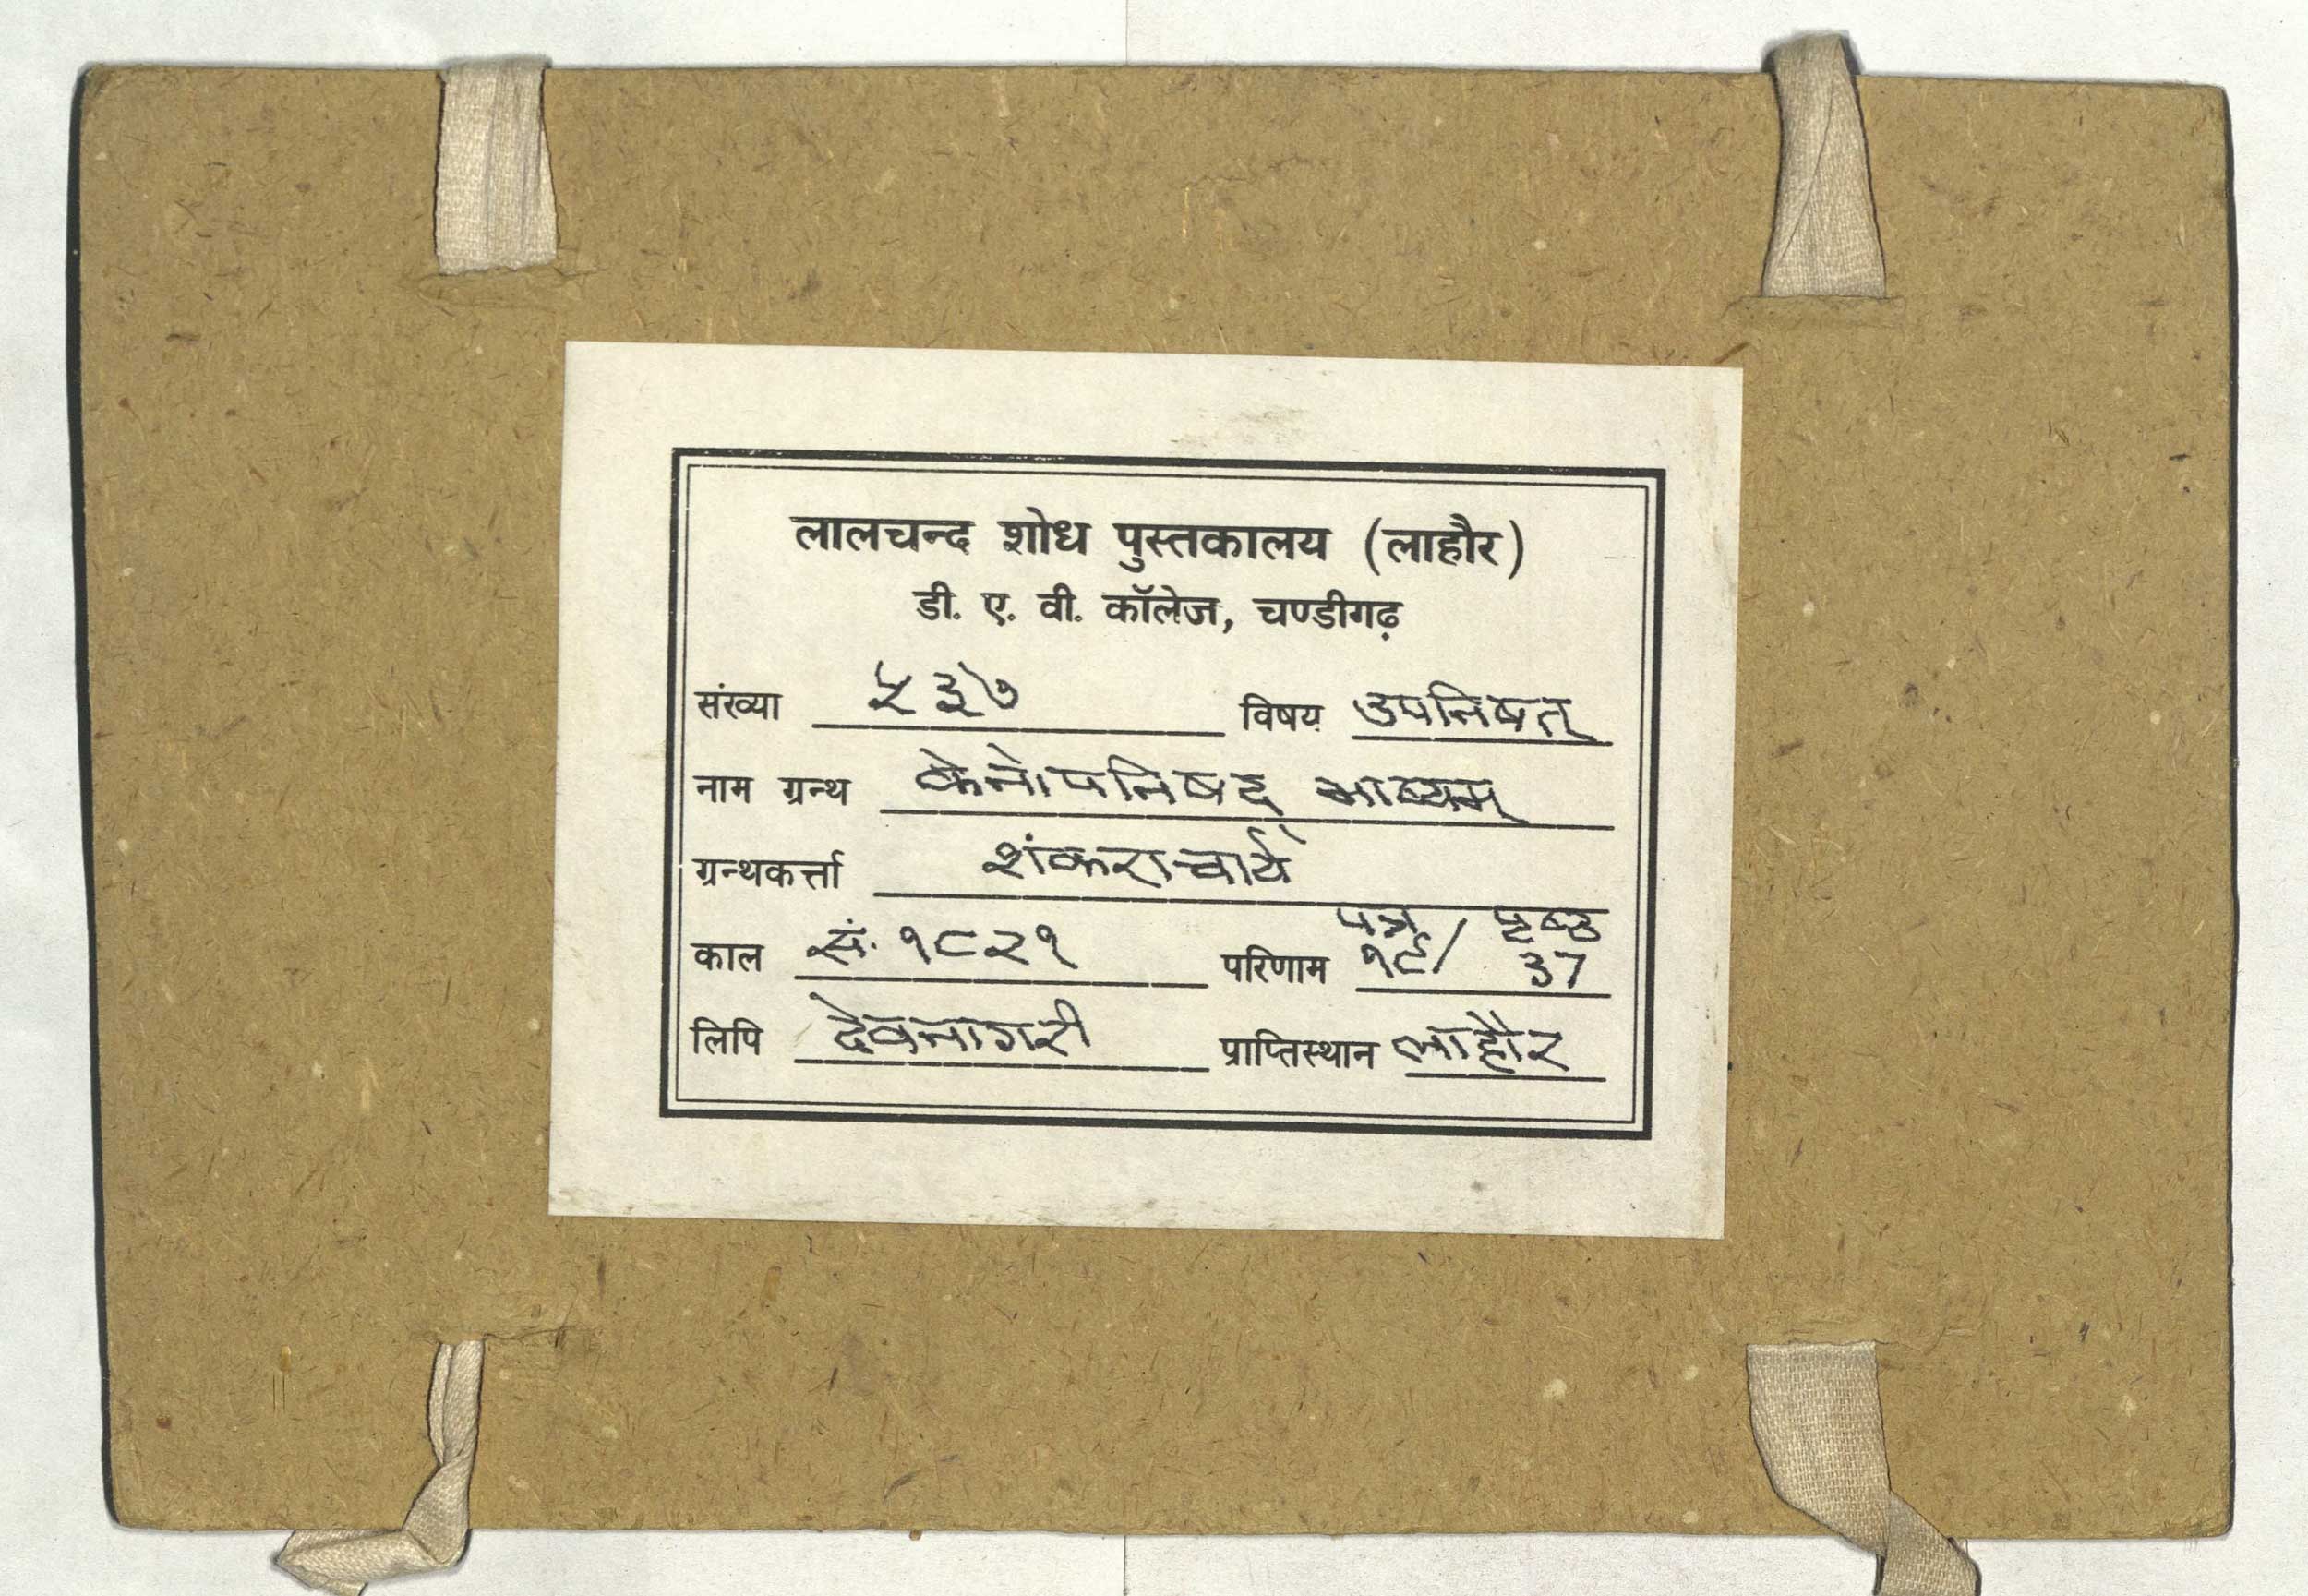 लालचन्द शोध पुस्तकालय (लाहौर)
डी. ए. वी. कॉलेज, चण्डीगढ़
संख्या ५३७ विषय उपनिषत्
नाम ग्रन्थ केनोपनिषद् भाष्यम्
ग्रन्थकर्त्ता शंकराचार्य
पत्र / पृष्ठ
काल सं. १८२१ परिणाम १९/ 37
लिपि देवनागरी प्राप्तिस्थान लाहौर